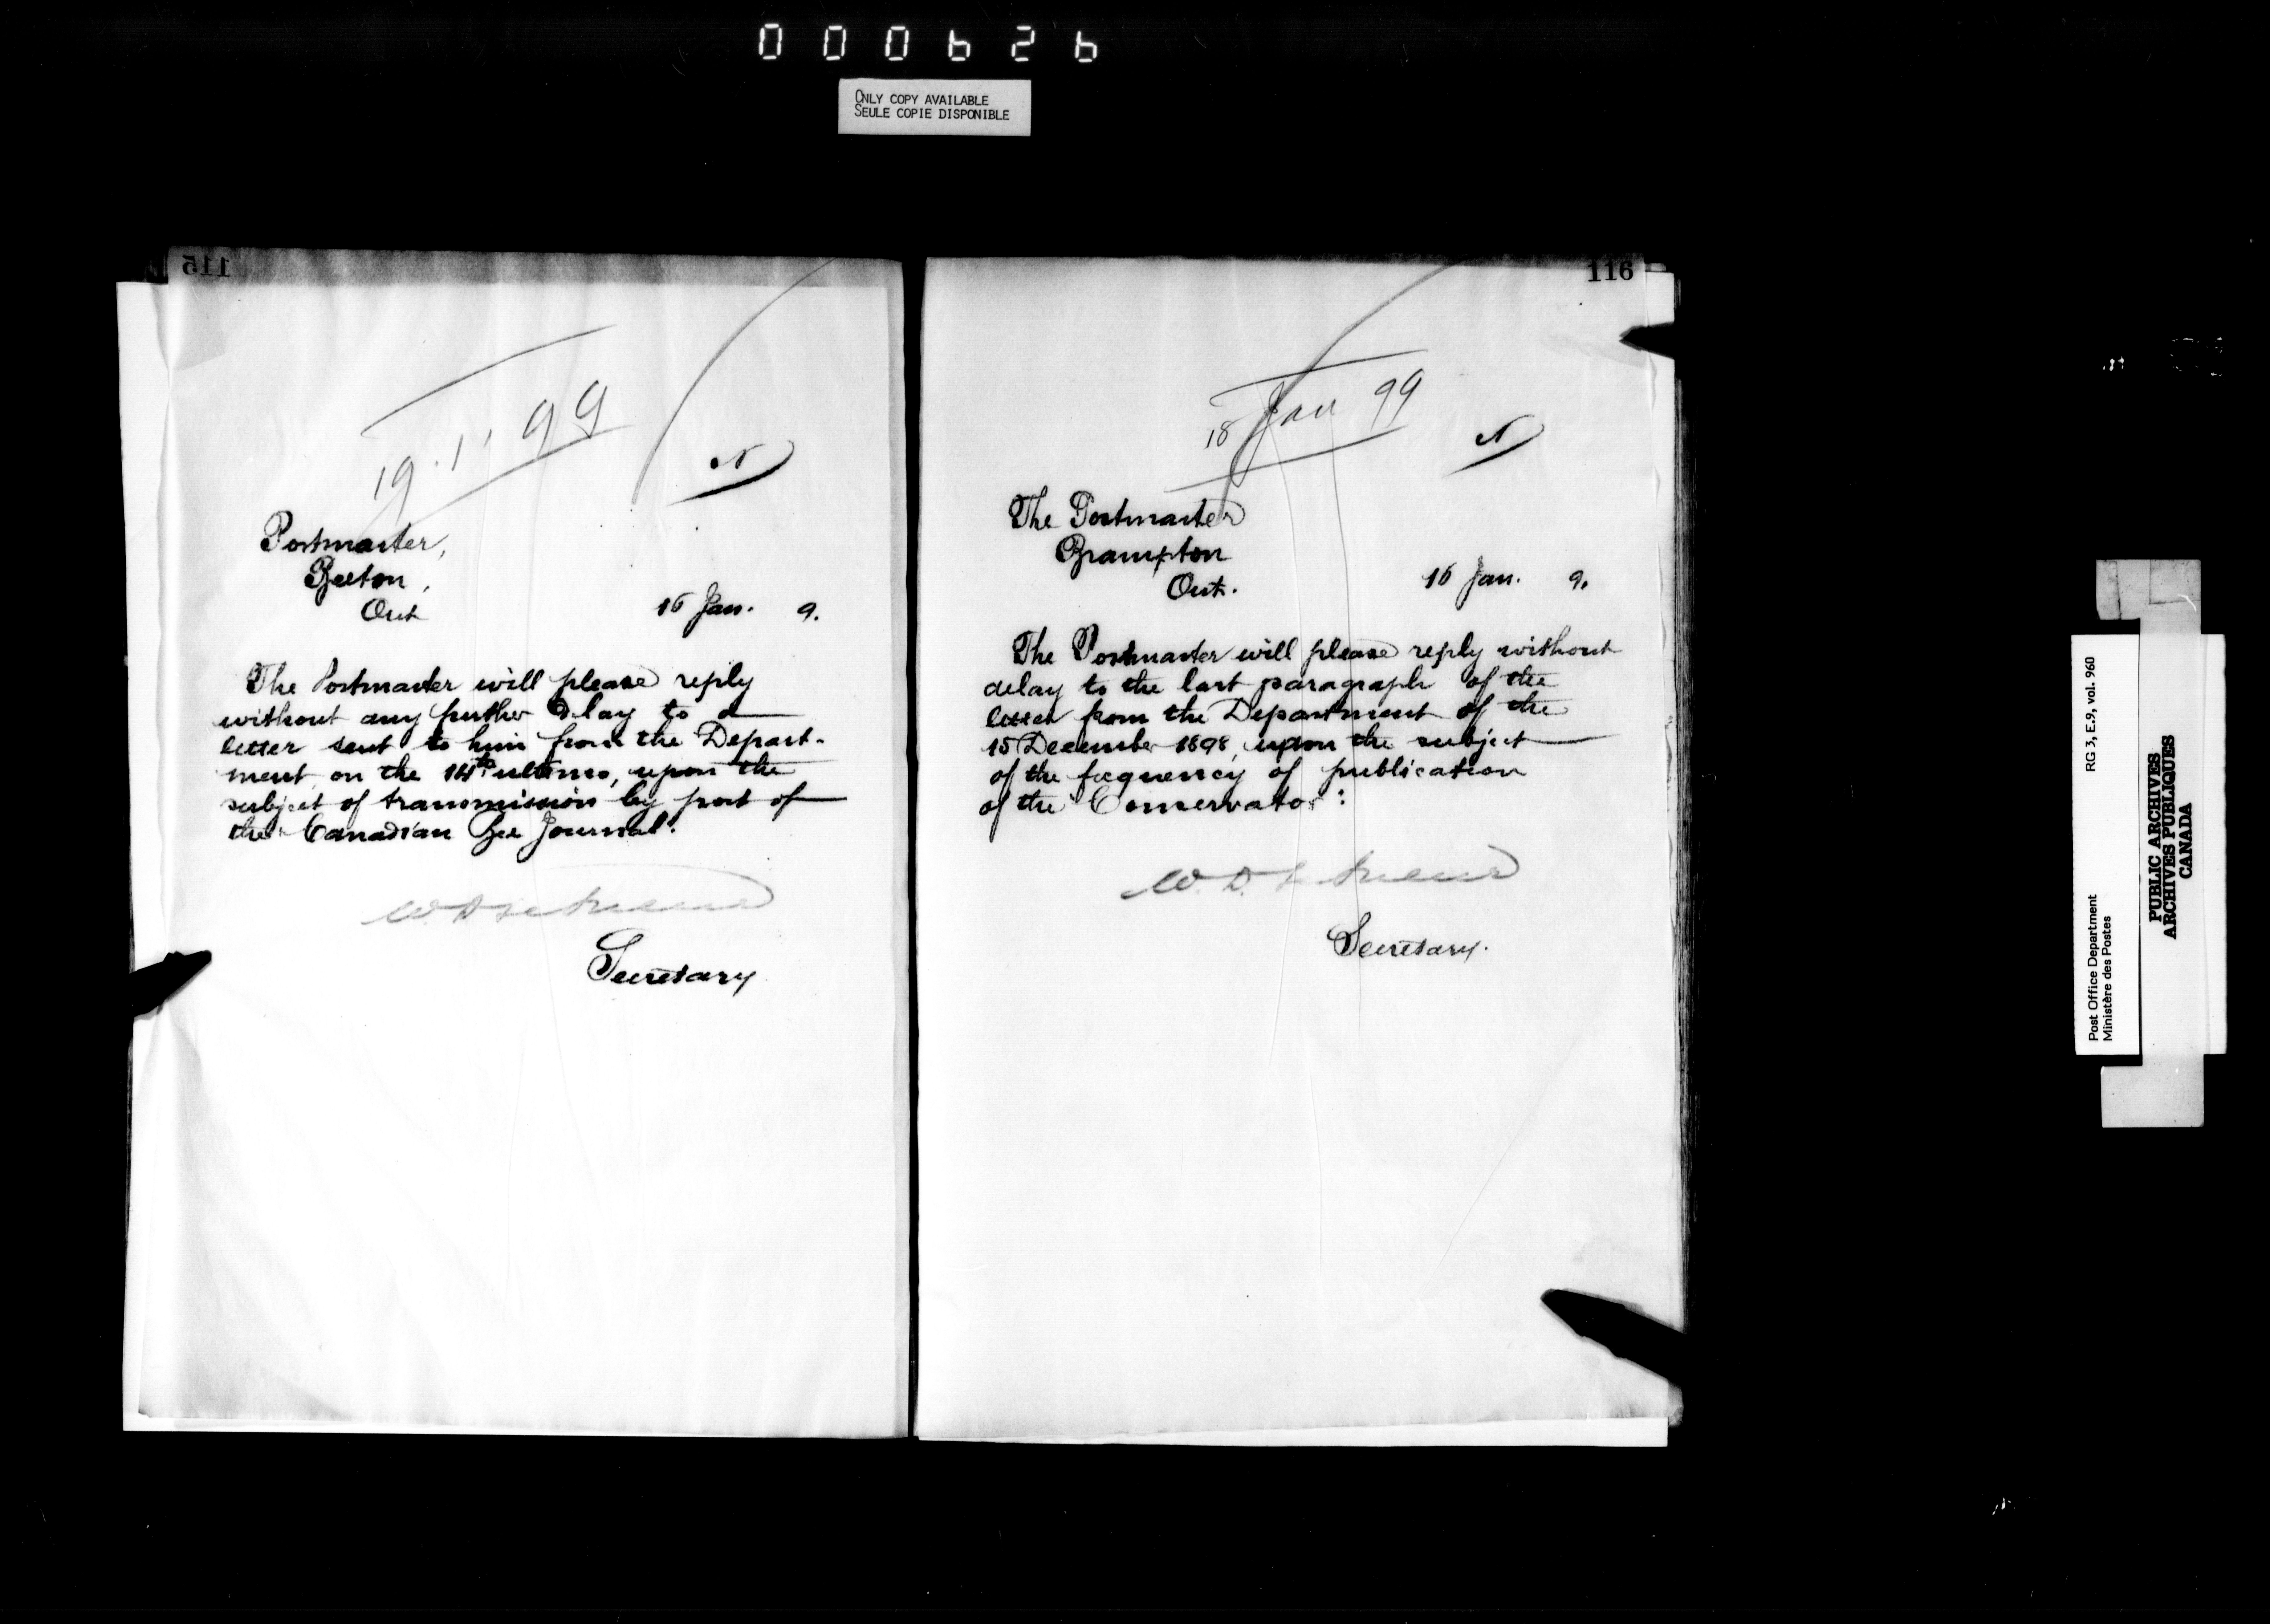 000626
ONLY COPY AVAILABLE
SEULE COPIE DISPONIBLE
115
19. 1. 99
Postmaster,
Beeton,
Ont
16 Jan. 9.
The Postmaster will please reply
without any further delay to a
letter sent to him from the Depart-
ment, on the 14th ultimo, upon the
subject of transmission by post of
the "Canadian Bee Journal".
Secretary
116
18 Jan 99
The Postmaster
Brampton
Ont.
16 Jan. 9.
The Postmaster will please reply without
delay to the last paragraph of the
letter from the Department of the
15 December 1898, upon the subject
of the frequency of publication
of the "Conservator":
W. D.
Secretary.
RG 3, E.9, vol. 960
Post Office Department
Ministère des Postes
PUBLIC ARCHIVES
ARCHIVES PUBLIQUES
CANADA